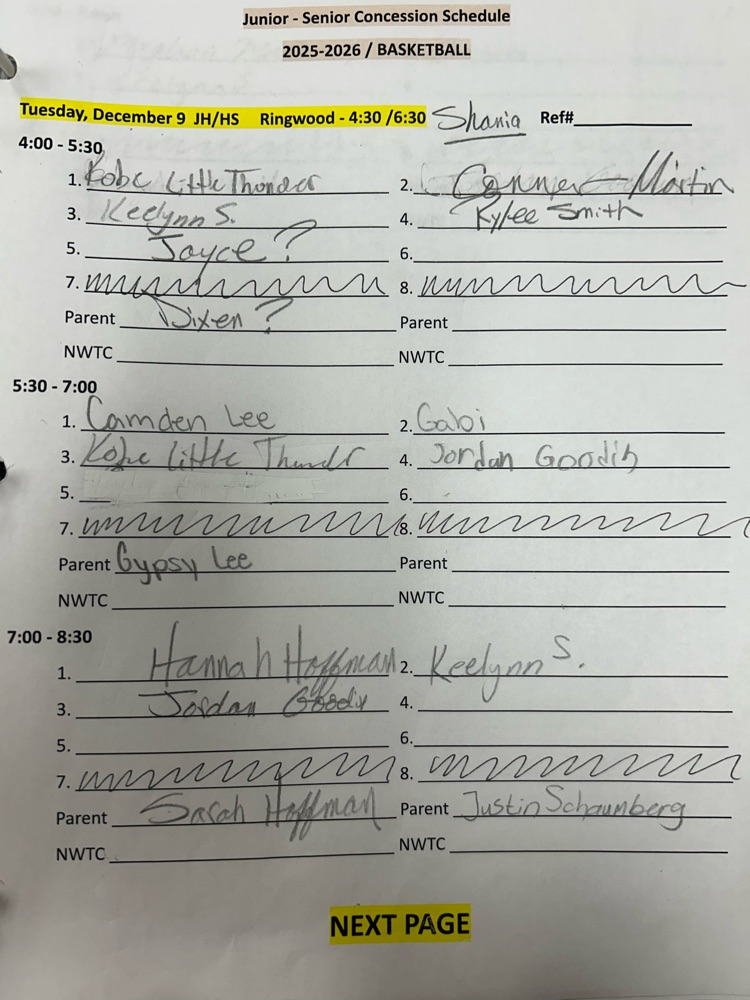 Junior - Senior Concession Schedule
2025-2026 / BASKETBALL
Tuesday, December 9 JH/HS Ringwood - 4:30 /6:30 Shania Ref#
4:00 - 5:30
1. Kobe Little Thunder 2. Conner Martin
3. Keelynn S. 4. Kylee Smith
5. Joyce ? 6.
7. 8.
Parent Dixen ? Parent
NWTC NWTC
5:30 - 7:00
1. Camden Lee 2. Gabi
3. Kobe Little Thunder 4. Jordan
5. 6.
7. 8.
Parent Gypsy Lee Parent
NWTC NWTC
7:00 - 8:30
1. Hannah Hoffman 2. Keelynn S.
3. Jordan 4.
5. 6.
7. 8.
Parent Sarah Hoffman Parent Justin Schaumberg
NWTC NWTC
NEXT PAGE